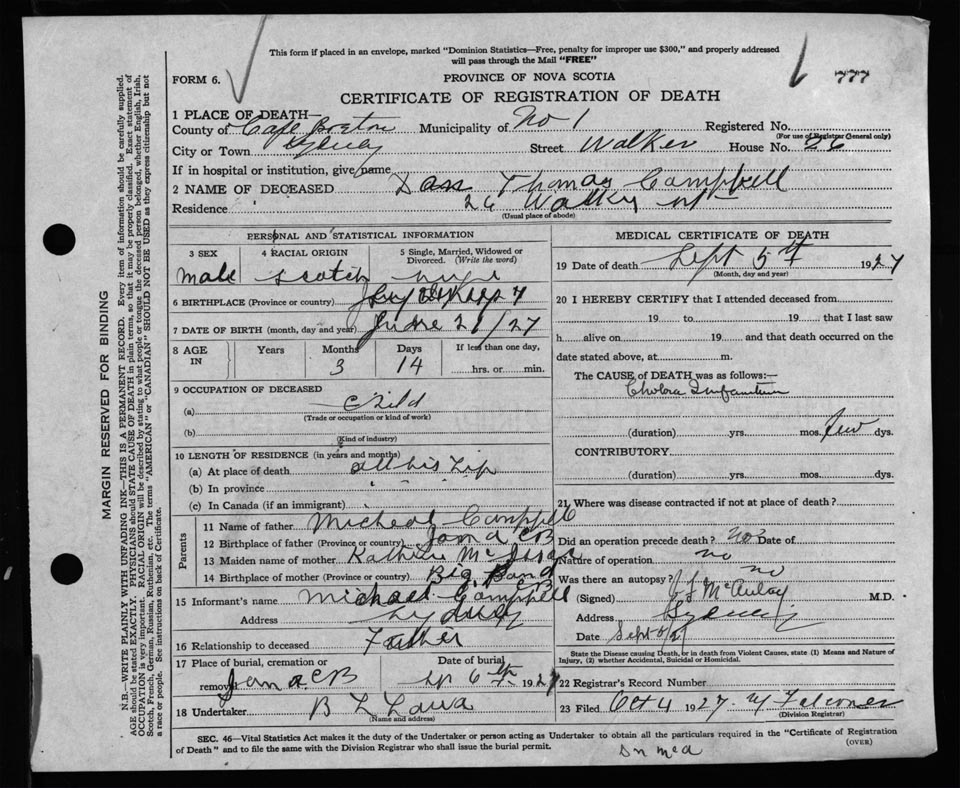 This form if placed in an envelope, marked "Dominion Statistics—Free, penalty for improper use $300," and properly addressed
will pass through the Mail "FREE"
FORM 6. PROVINCE OF NOVA SCOTIA 777
CERTIFICATE OF REGISTRATION OF DEATH
1 PLACE OF DEATH—
County of Cape Breton Municipality of No 1 Registered No.
(For use of Registrar General only)
City or Town Sydney Street Walker House No. 26
If in hospital or institution, give name
2 NAME OF DECEASED Dan Thomas Campbell
Residence 26 Walker
(Usual place of abode)
PERSONAL AND STATISTICAL INFORMATION
3 SEX 4 RACIAL ORIGIN 5 Single, Married, Widowed or Divorced. (Write the word)
male scotch
6 BIRTHPLACE (Province or country)
7 DATE OF BIRTH (month, day and year) June 21/27
8 AGE IN Years Months Days If less than one day,
3 14 hrs. or min.
9 OCCUPATION OF DECEASED
(a) child
(Trade or occupation or kind of work)
(b)
(Kind of industry)
10 LENGTH OF RESIDENCE (in years and months)
(a) At place of death all his
(b) In province " " "
(c) In Canada (if an immigrant)
Parents
11 Name of father Micheal Campbell
12 Birthplace of father (Province or country) CB
13 Maiden name of mother
14 Birthplace of mother (Province or country) Big Pond CB
15 Informant's name Michael Campbell
Address Sydney
16 Relationship to deceased Father
17 Place of burial, cremation or removal CB
Date of burial 6th 1927
18 Undertaker
(Name and address)
MEDICAL CERTIFICATE OF DEATH
19 Date of death Sept 5th 1927
(Month, day and year)
20 I HEREBY CERTIFY that I attended deceased from
19 to 19 that I last saw
h alive on 19 and that death occurred on the
date stated above, at m.
The CAUSE of DEATH was as follows:—
Cholera Infantum
(duration) yrs. mos. few dys.
CONTRIBUTORY
(duration) yrs. mos. dys.
21 Where was disease contracted if not at place of death?
Did an operation precede death? no Date of
Nature of operation no
Was there an autopsy? no
(Signed) McAulay M.D.
Address Sydney
Date Sept 6/27
State the Disease causing Death, or in death from Violent Causes, state (1) Means and Nature of
Injury, (2) whether Accidental, Suicidal or Homicidal.
22 Registrar's Record Number
23 Filed Oct 4 1927 Falconer
(Division Registrar)
SEC. 46—Vital Statistics Act makes it the duty of the Undertaker or person acting as Undertaker to obtain all the particulars required in the "Certificate of Registration
of Death" and to file the same with the Division Registrar who shall issue the burial permit.
(OVER)
MARGIN RESERVED FOR BINDING
N.B.—WRITE PLAINLY WITH UNFADING INK—THIS IS A PERMANENT RECORD. Every item of information should be carefully supplied.
AGE should be stated EXACTLY. PHYSICIANS should STATE CAUSE OF DEATH in plain terms, so that it may be properly classified. Exact statement of
OCCUPATION is very important. RACIAL ORIGIN will be described by stating to what people or tongue the deceased person belonged, whether English, Irish,
Scotch, French, German, Russian, Ruthenian, etc. The terms "AMERICAN" or "CANADIAN" SHOULD NOT BE USED as they express citizenship but not
a race or people. See instructions on back of Certificate.